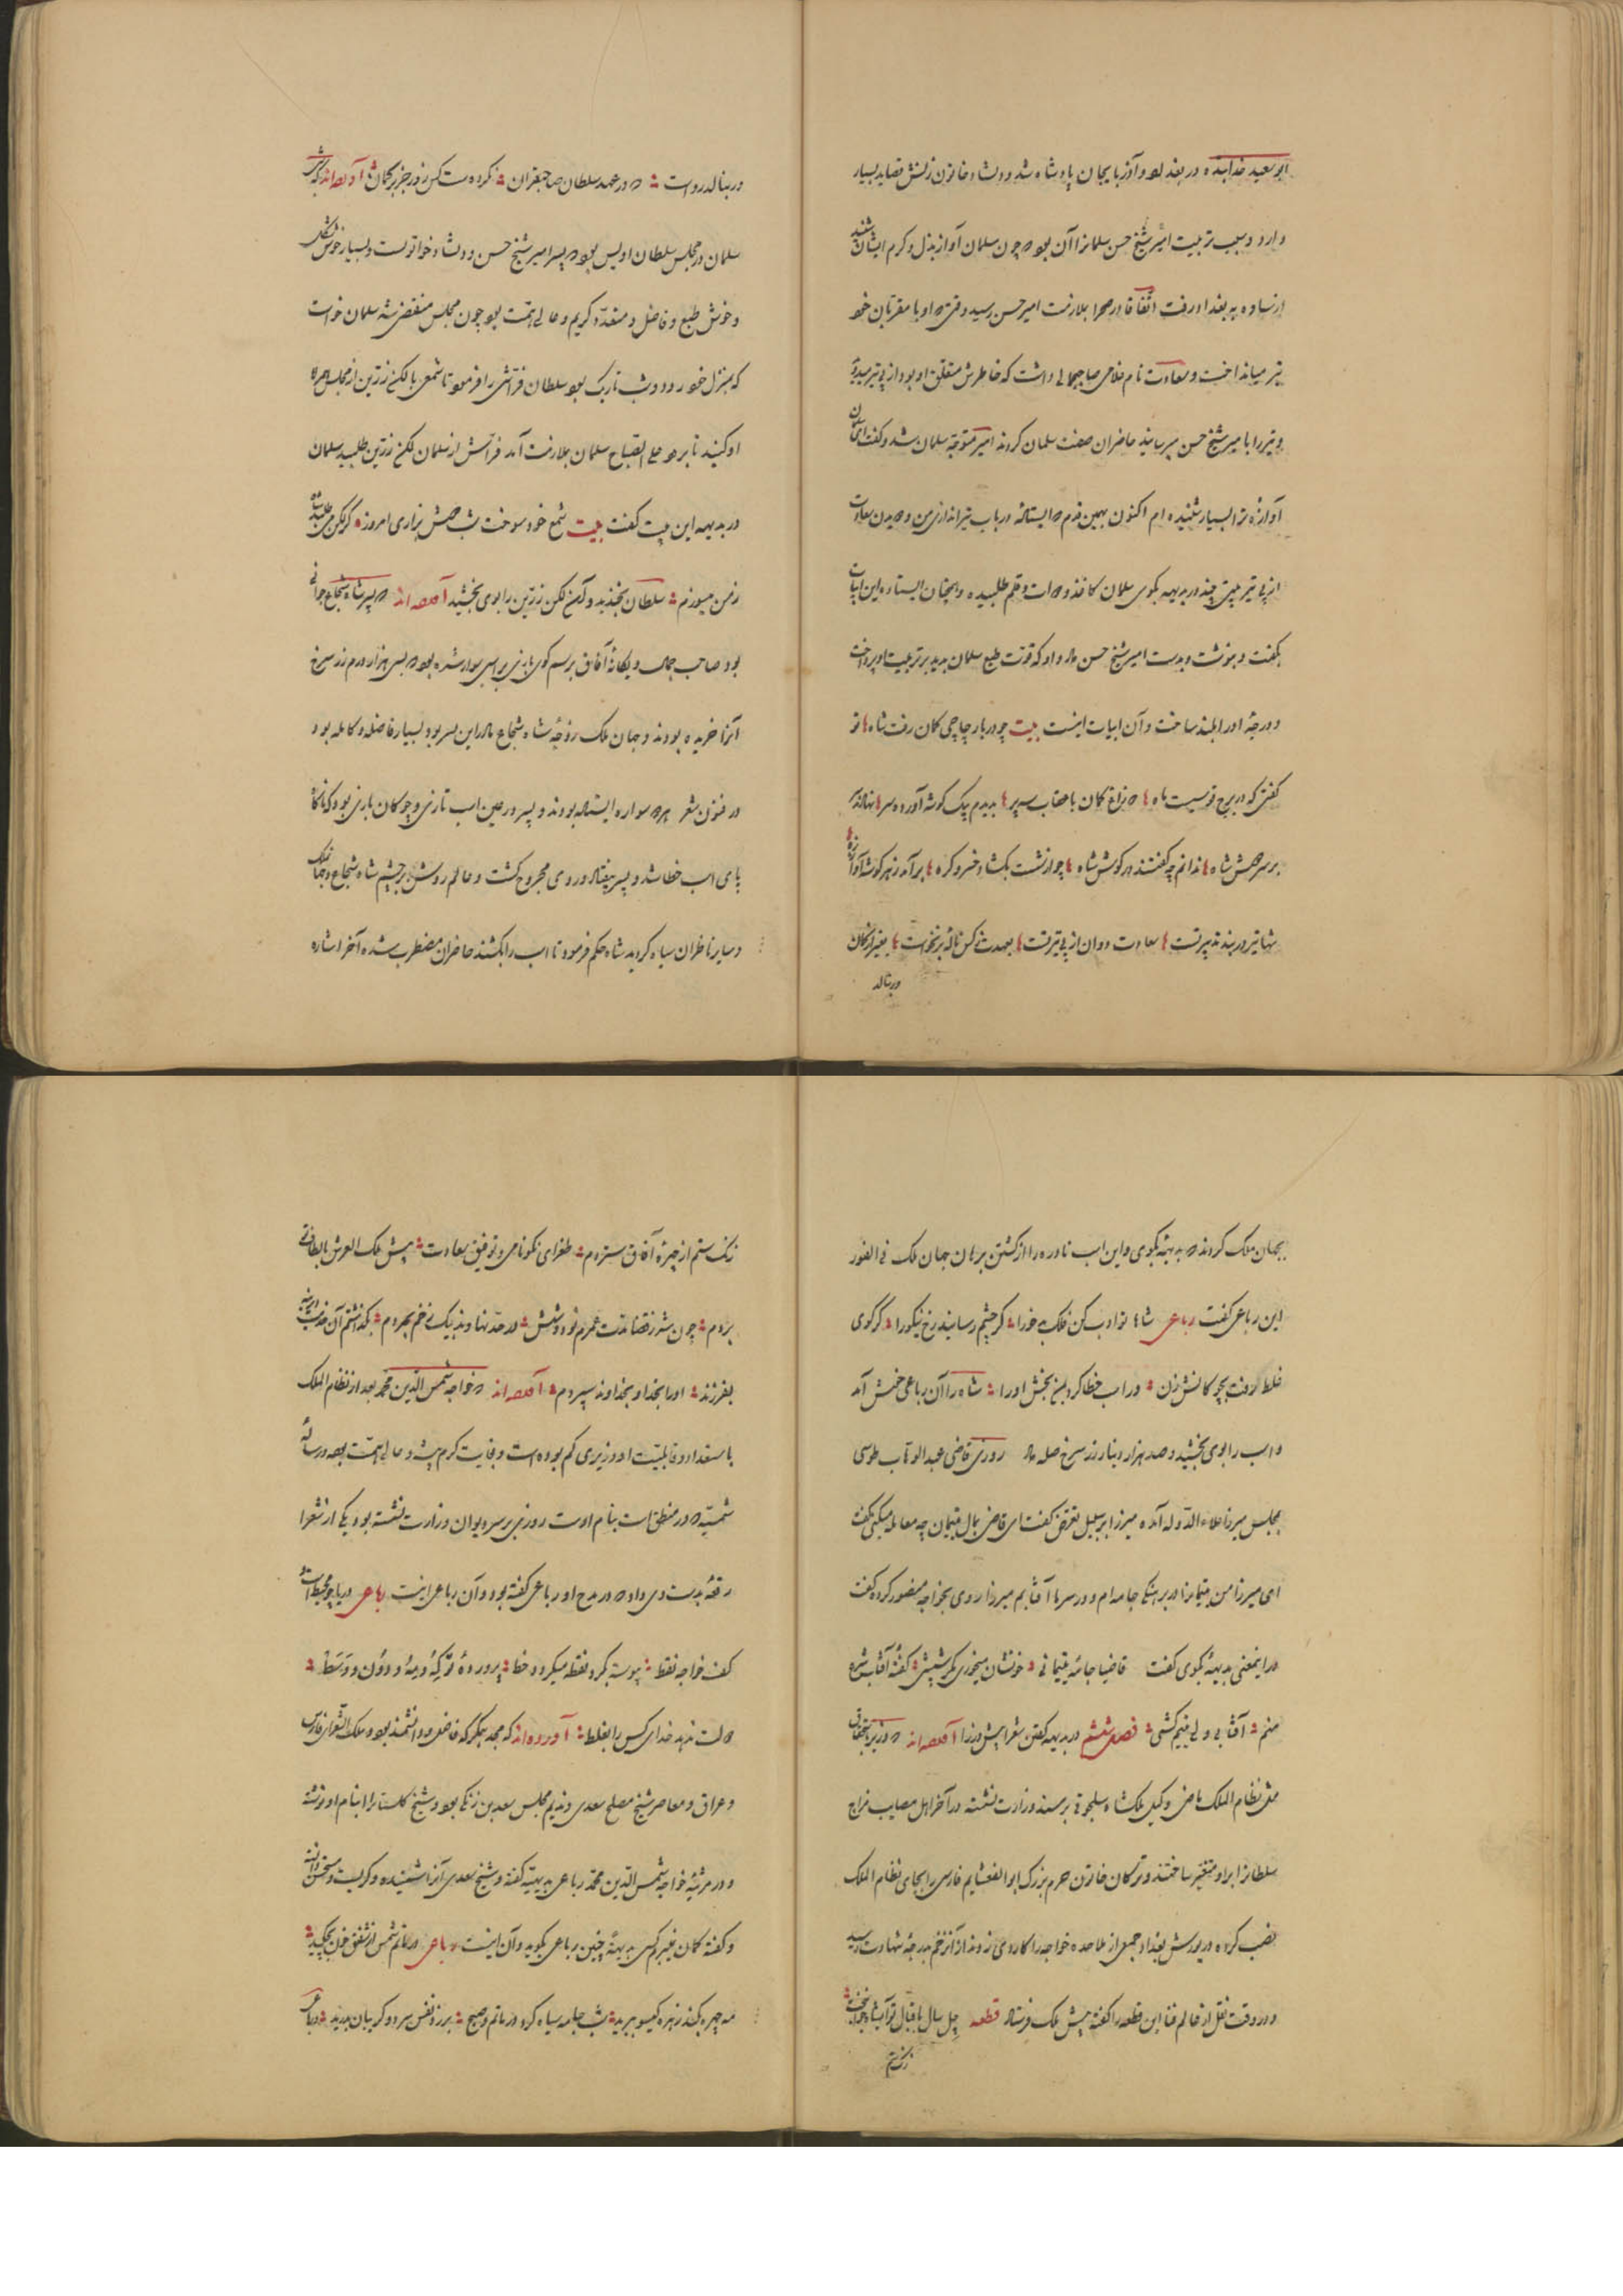 ابوسعید خدابنده در بغداد و آذربایجان پادشاه شد و دلشاد خاتون زنش قصاید بسیار
دارد و سبب تربیت امیر شیخ حسن سلمانرا آن بود که چون سلمان آوازه بذل و کرم ایشان شنید
از ساوه به بغداد رفت اتفاقا در صحرا بملازمت امیر حسن رسید وقتی که او با مقربان خود
تیر میانداخت و سعادت نام غلامی صاحب جمالی داشت که خاطرش متعلق او بود از پی تیر میدوید
و تیر را با میر شیخ حسن میرسانید حاضران صفت سلمان کردند امیر متوجه سلمان شد و گفت ای سلمان
آوازه ترا بسیار شنیده ام اکنون بهمین قدم که ایستاده در باب تیر اندازی من و دویدن سعادت
از پی تیر بیتی چند در بدیهه بگوی سلمان کاغذ و دوات و قلم طلبیده و همچنان ایستاده این ابیات
بگفت و بنوشت و بدست امیر شیخ حسن داد و او که قوت طبع سلمان بدید بر تربیت او پرداخت
و درجه او را بلند ساخت و آن ابیات اینست بیت چو در بار چاچی کمان رفت شاه تو
گفتی که در برج قوسیست ماه دو زاغ کمان با عقاب سه پر بدیدم بیک گوشه آورده سر نهادند
بر سر دوش شاه ندانم چه گفتند در گوش شاه چو از شست بگشاد خسرو گره برآمد ز هر گوشه آواز زه
شها تیر در بند تدبیر تست سعادت دوان از پی تیر تست بعهدت کس ناله بر نخواست بغیر از کمان
در بنالد
در بنالد رواست که در عهد سلطان صاحبقران نکرده ست کس زور جز بر کمان آورده اند که شبی
سلمان در مجلس سلطان اویس بود که پسر امیر شیخ حسن و دلشاد خواتونست و بسیار خوش شکل
و خوش طبع و فاضل و مستعد و کریم و عالی همت بود چون مجلس منقضی شد سلمان خواست
که بمنزل خود رود و شب تاریک بود سلطان فراشی را فرمود تا شمعی با لگن زرین از مجلس همراه
او کنید تا برد علی الصباح سلمان بملازمت آمد فراش از سلمان لگن زرین طلبید سلمان
در بدیهه این بیت گفت بیت شمع خود سوخت شب دوش بزاری امروز گر لگن می طلبد شاه
ز من میسوزم سلطان بخندید و آن لگن زرین را بوی بخشید آورده اند که پسر شاه شجاع جوانی
بود صاحب جمال و یگانه آفاق برسم گوی بازی بر اسبی سوار شده بود که بسی هزار درم زر سرخ
آنرا خریده بودند و جهان ملک زوجه شاه شجاع مادر این پسر بود بسیار فاضله و کامله بود
در فنون شعر هر دو سواره ایستاده بودند و پسر در عین اسب تازی و چوگان بازی بود که ناگاه
پای اسب خطا شد و پسر بیفتاد و روی مجروح گشت و عالم روشن بر چشم شاه شجاع و جهان ملک
و سایر ناظران سیاه گردید شاه حکم فرمود تا اسب را بکشند حاضران مضطرب شده آخر اشاره
بجهان ملک کردند که بدیهه بگوی و این اسب نادره را از کشتن برهان جهان ملک فی الفور
این رباعی گفت رباعی شاها تو ادب کن فلک بد خو را گر چشم رسانید رخ نیکو را گر گوی
غلط رفت بچوگانش زن ور اسب خطا کرد بمن بخش او را شاه را آن رباعی خوش آمد
و اسب را بوی بخشید و صد هزار دینار زر سرخ صله داد روزی قاضی عبد الوهاب طوسی
بمجلس میرزا علاء الدوله آمده میرزا بر سبیل تعرض گفت ای قاضی بمال یتیمان چه معامله میکنی گفت
ای میرزا من یتیمانرا در برهنگی جامه ام و در سرما آفتابم میرزا روی بخواجه منصور کرده گفت
در اینمعنی بدیهه بگوی گفت قاضیا جامه یتیمانی خونشان میخوری مگر شپشی گفته آفتاب شرع
منم آفتابی ولی یتیم کشی فصل ششم در بدیهه گفتن شعرا پیش وزرا آورده اند که وزیر باستحقاق
مثل نظام الملک ماضی وکیل ملکشاه سلجوقی بر مسند وزارت ننشسته در آخر اهل مصایب مزاج
سلطانرا برو متغیر ساختند و ترکان خاتون حرم بزرگ ابو الغنایم فارسی را بجای نظام الملک
نصب کرده در یورش بغداد جمعی از ملاحده خواجه را کاردی زدند از آن زخم بدرجه شهادت رسید
و در وقت نقل از عالم فنا این قطعه را گفته پیش ملک فرستاد قطعه چل سال باقبال تو ای شاه جوانبخت
زنگ ستم
زنگ ستم از چهره آفاق ستردم طغرای نکونامی و توفیق سعادت پیش ملک العرش بطغرای تو
بردم چون شد ز قضا مدت عمرم نود و شش در حد نهاوند بیک زخم بمردم بگذاشتم آن خدمت دیرینه
بفرزند او را بخدا و بخداوند سپردم آورده اند که خواجه شمس الدین محمد بعد از نظام الملک
باستعداد و قابلیت او وزیری کم بوده است و بغایت کرم پیشه و عالی همت بود رساله
شمسیه که در منطق است بنام اوست روزی بر سر دیوان وزارت نشسته بود یکی از شعرا
رقعه بدست وی داد که در مدح او رباعی گفته بود و آن رباعی اینست رباعی دریا چو محیط است
کف خواجه نقط پیوسته بگرد نقطه میگردد خط پرورده تو که و مه و دون و وسط
دولت ندهد خدای کس را بغلط آورده اند که مجد همگر که فاضل و دانشمند بود و ملک الشعرای فارس
و عراق و معاصر شیخ مصلح سعدی و ندیم مجلس سعد بن زنگی بود و شیخ گلستانرا بنام او نوشته
و در مرثیه خواجه شمس الدین محمد رباعی بدیهیه گفته و شیخ سعدی آنرا شنیده و گریست و تحسین
و گفته گمان نمیبرم کسی بدیهه چنین رباعی بگوید و آن اینست رباعی در ماتم شمس از شفق خون بچکید
مه چهره بکند زهره گیسو ببرید شب جامه سیاه کرد در ماتم و صبح بر زد نفس سرد و گریبان بدرید رباعی